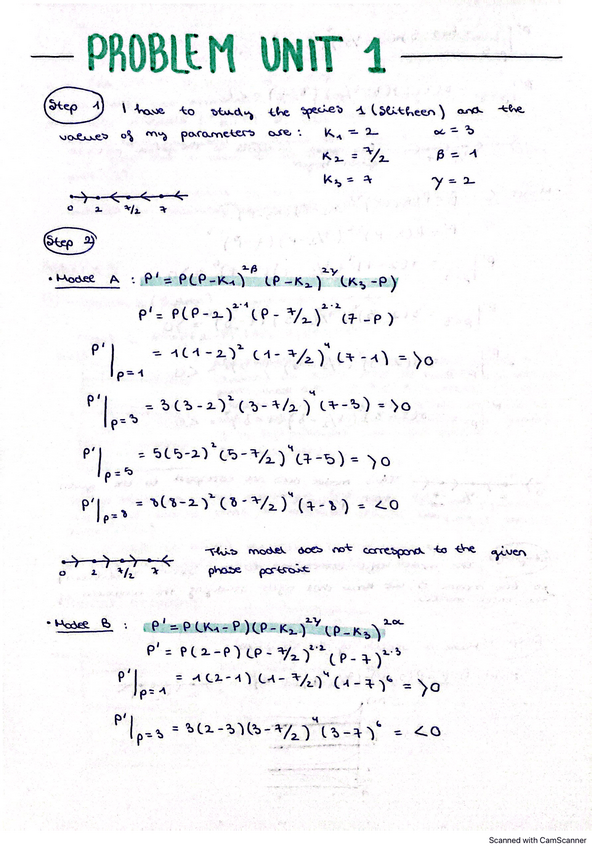 PROBLEM UNIT 1
Step 1) I have to study the species 1 (Slitheen) and the
values of my parameters are: K₁ = 2 α = 3
K₂ = 7/2 β = 1
K₃ = 7 γ = 2
0 2 7/2 7
Step 2)
• Model A: P' = P(P-K₁)^2β (P-K₂)^2γ (K₃-P)
P' = P(P-2)^2·1 (P-7/2)^2·2 (7-P)
P'|P=1 = 1(1-2)² (1-7/2)⁴ (7-1) = >0
P'|P=3 = 3(3-2)² (3-7/2)⁴ (7-3) = >0
P'|P=5 = 5(5-2)² (5-7/2)⁴ (7-5) = >0
P'|P=8 = 8(8-2)² (8-7/2)⁴ (7-8) = <0
This model does not correspond to the given
0 2 7/2 7 phase portrait
• Model B: P' = P(K₁-P)(P-K₂)^2γ (P-K₃)^2α
P' = P(2-P)(P-7/2)^2·2 (P-7)^2·3
P'|P=1 = 1(2-1)(1-7/2)⁴(1-7)⁶ = >0
P'|P=3 = 3(2-3)(3-7/2)⁴(3-7)⁶ = <0
Scanned with CamScanner